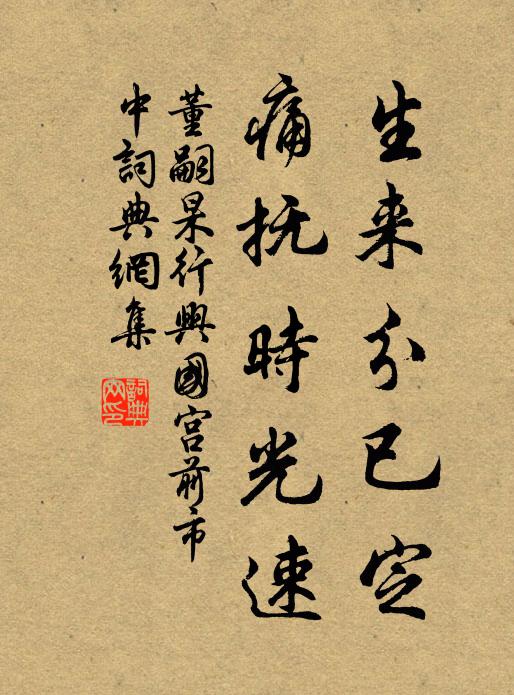 生来分已定
痛抚時光速
董嗣杲行興國宫前市
中詞典網集
詞典